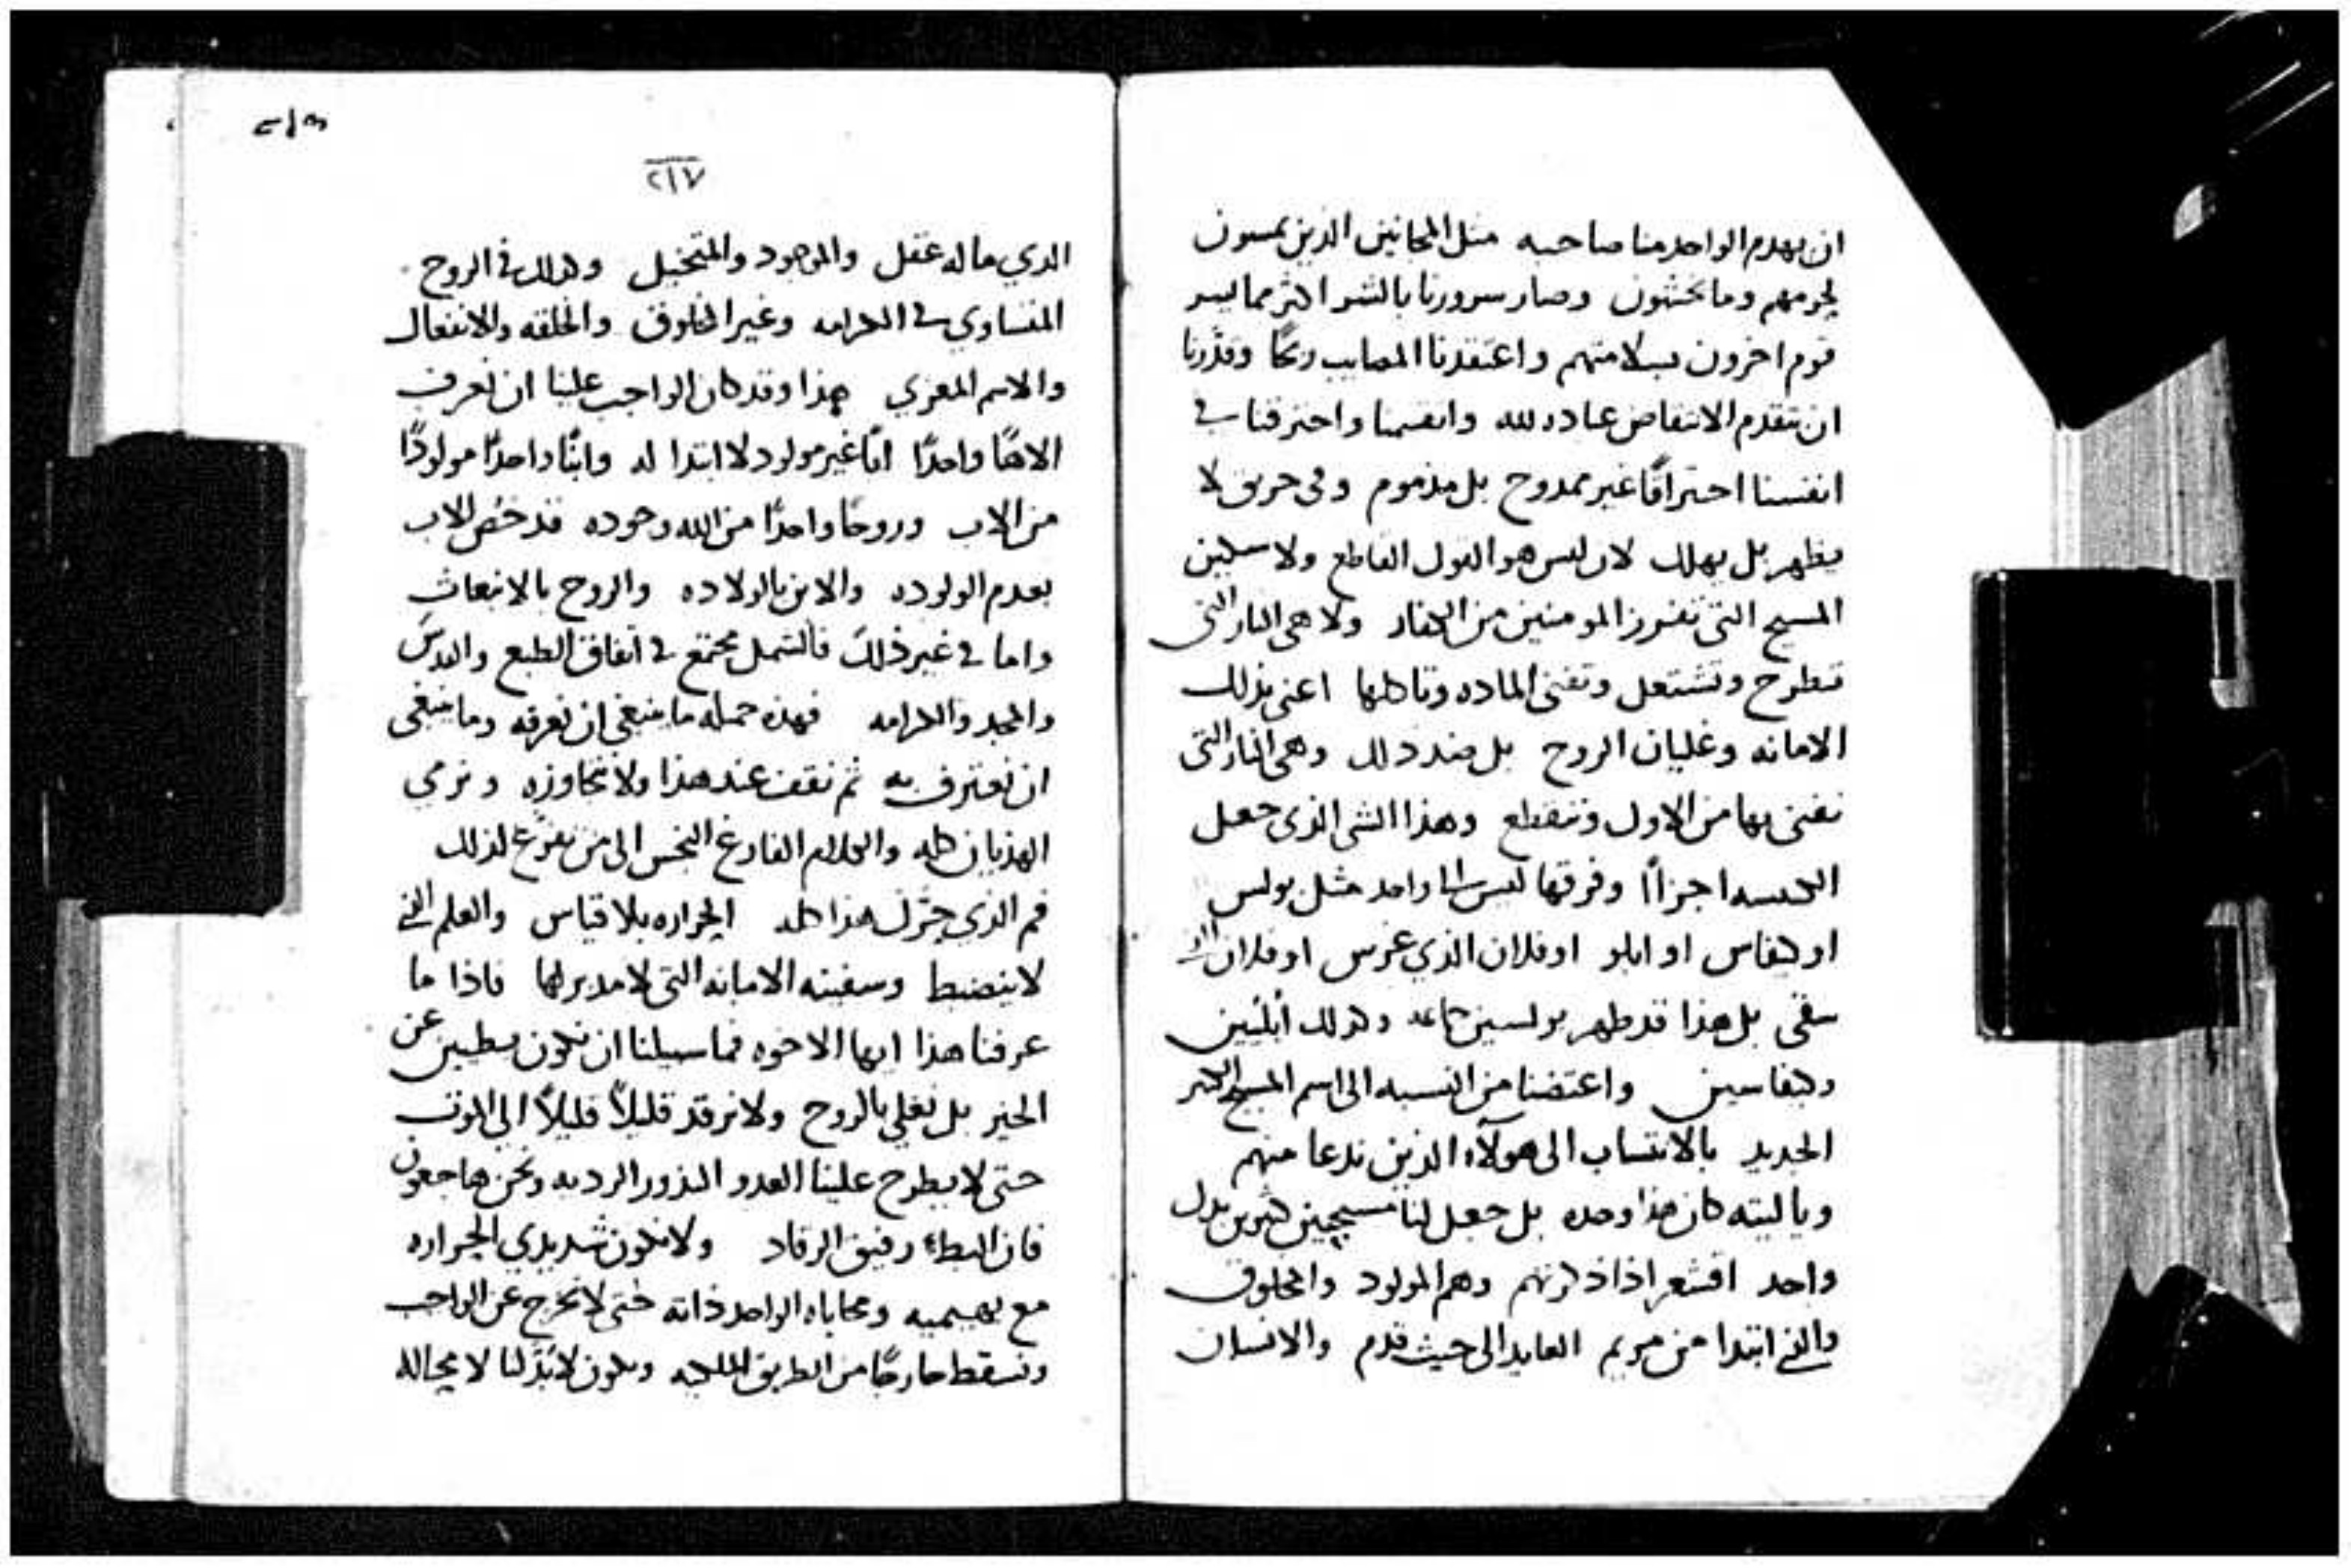 ان يهدم الواحد منا صاحبه مثل المجانين الذين يمسون
لحومهم وما يحسون وصار سرورنا بالشر اكثر مما يسر
قوم اخرون بسلامتهم واعتقدنا المصايب ربحًا وقدَّرنا
ان نتقدم الانتقاض عباده لله وانقسمنا واحترقنا في
انفسنا احتراقًا غير ممدوح بل مذموم وفي حريق لا
يطهر بل يهلك لان ليس هو القول القاطع ولا سكين
المسيح التي تفرز المومنين من الكفار ولا هي النار التي
تطرح وتشتعل وتفني الماده وتاكلها اعني بذلك
الامانه وغليان الروح بل ضد ذلك وهي النار التي
نفنى بها من الاول وننقطع وهذا الشي الذي جعل
الكنيسه اجزاًا وفرقها ليس الى واحد مثل بولس
او كيفاس او ابلو او فلان الذي غرس او فلان
سقى بل هذا قد طهر بولسين جماعه وكذلك ابلّيين
وكيفاسين واعتضنا من النسبه الى اسم المسيح الكبير
الجديد بالانتساب الى هولآء الذين ندعا منهم
وياليته كان هذا وحده بل جعل لنا مسيحيين كثيرين بدل
واحد اقشعر اذا ذكرتهم وهم المولود والمخلوق
والذي ابتدا من مريم العايد الى حيث قدم والانسان
٢١٣
٢١٧
الذي ماله عقل والموجود والمتخيل وكذلك في الروح
المتساوي في الكرامه وغير المخلوق والخلقه والانفعال
والاسم المعزي هذا وقد كان الواجب علينا ان نعرف
الاهًا واحدًا ابًا غير مولود لا ابتدا له وابنًا واحدًا مولودًا
من الاب وروحًا واحدًا من الله وجوده قد خُص الاب
بعدم الولوده والابن بالولاده والروح بالانبعاث
واما في غير ذلك فالشمل مجتمع في اتفاق الطبع والقدس
والمجد والكرامه فهذه جمله ما ينبغي ان نعرفه وما ينبغي
ان نعترف به ثم نقف عند هذا ولا نتجاوزه ونرمي
الهذيان كله والكلام الفارغ النجس الى من تفرَّغ لذلك
فم الذي حرّك هذا كله الحراره بلا قياس والعلم الذي
لا ينضبط وسفينه الامانه التي لا مدبر لها فاذا ما
عرفنا هذا ايها الاخوه فما سبيلنا ان نكون مبطيين عن
الخير بل نغلي بالروح ولا نرقد قليلاً قليلاً الى الموت
حتى لا يطرح علينا العدو البذور الرديه ونحن هاجعون
فان البطاء رفيق الرقاد ولا نكون شديدي الحراره
مع بهيميه ومحاباه الواحد ذاته حتى لا نخرج عن الواجب
ونسقط خارجًا من الطريق الملكيه ويكون لا بُدّ لنا لا محاله